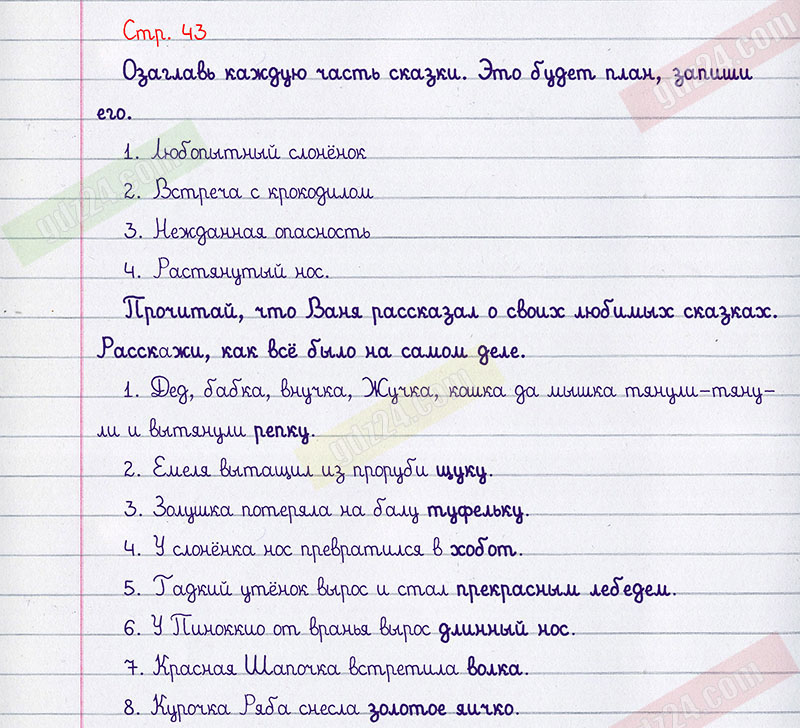 Стр. 43
Озаглавь каждую часть сказки. Это будет план, запиши
его.
1. Любопытный слонёнок
2. Встреча с крокодилом
3. Нежданная опасность
4. Растянутый нос.
Прочитай, что Ваня рассказал о своих любимых сказках.
Расскажи, как всё было на самом деле.
1. Дед, бабка, внучка, Жучка, кошка да мышка тянули-тяну-
ли и вытянули репку.
2. Емеля вытащил из проруби щуку.
3. Золушка потеряла на балу туфельку.
4. У слонёнка нос превратился в хобот.
5. Гадкий утёнок вырос и стал прекрасным лебедем.
6. У Пиноккио от вранья вырос длинный нос.
7. Красная Шапочка встретила волка.
8. Курочка Ряба снесла золотое яичко.
gdz24.com
gdz24.com
gdz24.com
gdz24.com